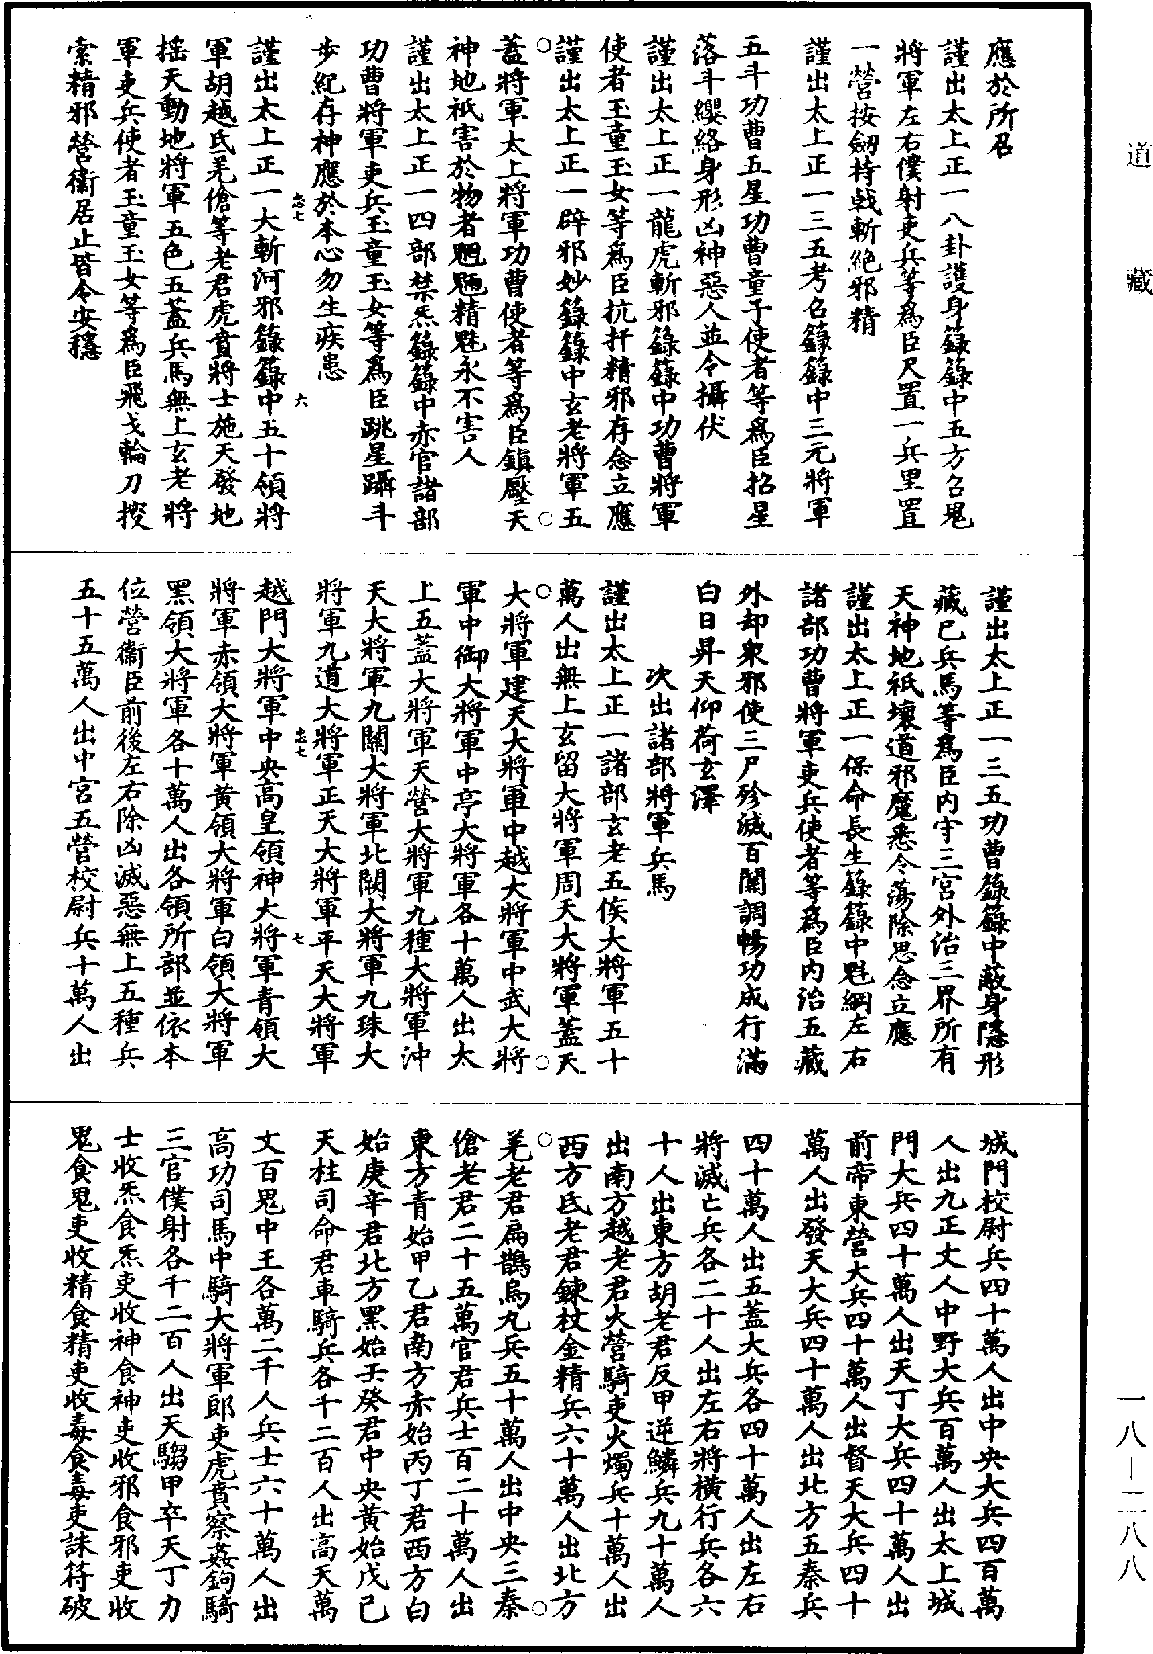 道藏
應於所召
謹出太上正一八卦護身籙籙中五方召鬼
將軍左右僕射吏兵等爲臣尺置一兵里置
一營按劒持戟斬絕邪精
謹出太上正一三五考召籙籙中三元將軍
五斗功曹五星功曹童子使者等爲臣招星
落斗纓絡身形凶神惡人並令攝伏
謹出太上正一龍虎斬邪籙籙中功曹將軍
使者玉童玉女等爲臣抗扞精邪存念立應
謹出太上正一辟邪妙籙籙中玄老將軍五
蓋將軍太上將軍功曹使者等爲臣鎮壓天
神地祇害於物者魍魎精魅永不害人
謹出太上正一四部禁炁籙籙中赤官諸部
功曹將軍吏兵玉童玉女等爲臣跳星躡斗
步紀存神應於本心勿生疾患
忠七
六
謹出太上正一大斬河邪籙籙中五十領將
軍胡越氐羌傖等老君虎賁將士施天發地
搖天動地將軍五色五蓋兵馬無上玄老將
軍吏兵使者玉童玉女等爲臣飛戈輪刀搜
索精邪營衞居止皆令安穩
謹出太上正一三五功曹籙籙中蔽身隱形
藏己兵馬等爲臣內守三宮外治三界所有
天神地祇壞道邪魔悉令蕩除思念立應
謹出太上正一保命長生籙籙中魁綱左右
諸部功曹將軍吏兵使者等爲臣內治五藏
外却衆邪使三尸殄滅百關調暢功成行滿
白日昇天仰荷玄澤
次出諸部將軍兵馬
謹出太上正一諸部玄老五侯大將軍五十
萬人出無上玄留大將軍周天大將軍蓋天
大將軍建天大將軍中越大將軍中武大將
軍中御大將軍中亭大將軍各十萬人出太
上五蓋大將軍天營大將軍九種大將軍沖
天大將軍九關大將軍北闕大將軍九珠大
將軍九道大將軍正天大將軍平天大將軍
忠七
七
越門大將軍中央高皇領神大將軍青領大
將軍赤領大將軍黃領大將軍白領大將軍
黑領大將軍各十萬人出各領所部並依本
位營衞臣前後左右除凶滅惡無上五種兵
五十五萬人出中宮五營校尉兵十萬人出
城門校尉兵四十萬人出中央大兵四百萬
人出九正丈人中野大兵百萬人出太上城
門大兵四十萬人出天丁大兵四十萬人出
前帝東營大兵四十萬人出督天大兵四十
萬人出發天大兵四十萬人出北方五秦兵
四十萬人出五蓋大兵各四十萬人出左右
將滅亡兵各二十人出左右將橫行兵各六
十人出東方胡老君反甲逆鱗兵九十萬人
出南方越老君火營騎吏火燭兵十萬人出
西方氐老君鍊杖金精兵六十萬人出北方
羌老君扁鵲烏丸兵五十萬人出中央三秦
傖老君二十五萬官君兵士百二十萬人出
東方青始甲乙君南方赤始丙丁君西方白
始庚辛君北方黑始壬癸君中央黃始戊己
天柱司命君車騎兵各千二百人出高天萬
丈百鬼中王各萬二千人兵士六十萬人出
高功司馬中騎大將軍郎吏虎賁察姦鉤騎
三官僕射各千二百人出天騶甲卒天丁力
士收炁食炁吏收神食神吏收邪食邪吏收
鬼食鬼吏收精食精吏收毒食毒吏誅符破
一八—二八八